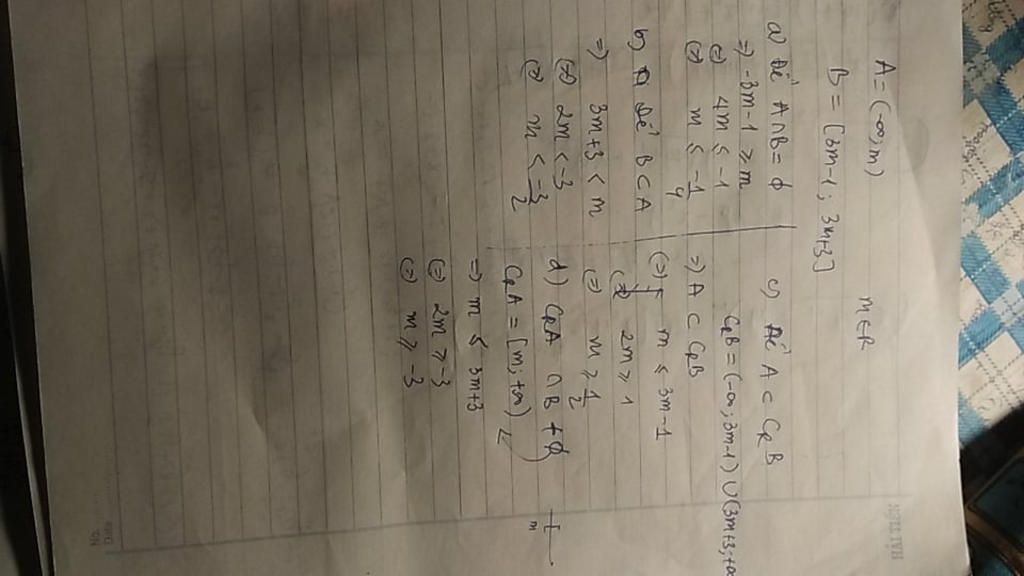 A = (-∞; m)
B = [3m-1; 3m+3]
m ∈ R
a) Để A ∩ B = ∅
=> -3m-1 ≥ m
<=> 4m ≤ -1
<=> m ≤ -1/4
b) Để B ⊂ A
=> 3m+3 < m
<=> 2m < -3
<=> m < -3/2
c) Để A ⊂ CRB
CRB = (-∞; 3m-1) ∪ (3m+3; +∞
=> A ⊂ CRB
<=> m ≤ 3m-1
2m ≥ 1
<=> m ≥ 1/2
d) CRA ∩ B ≠ ∅
CRA = [m; +∞)
=> m ≤ 3m+3
<=> 2m ≥ -3
<=> m ≥ -3
m
HAI TIEN